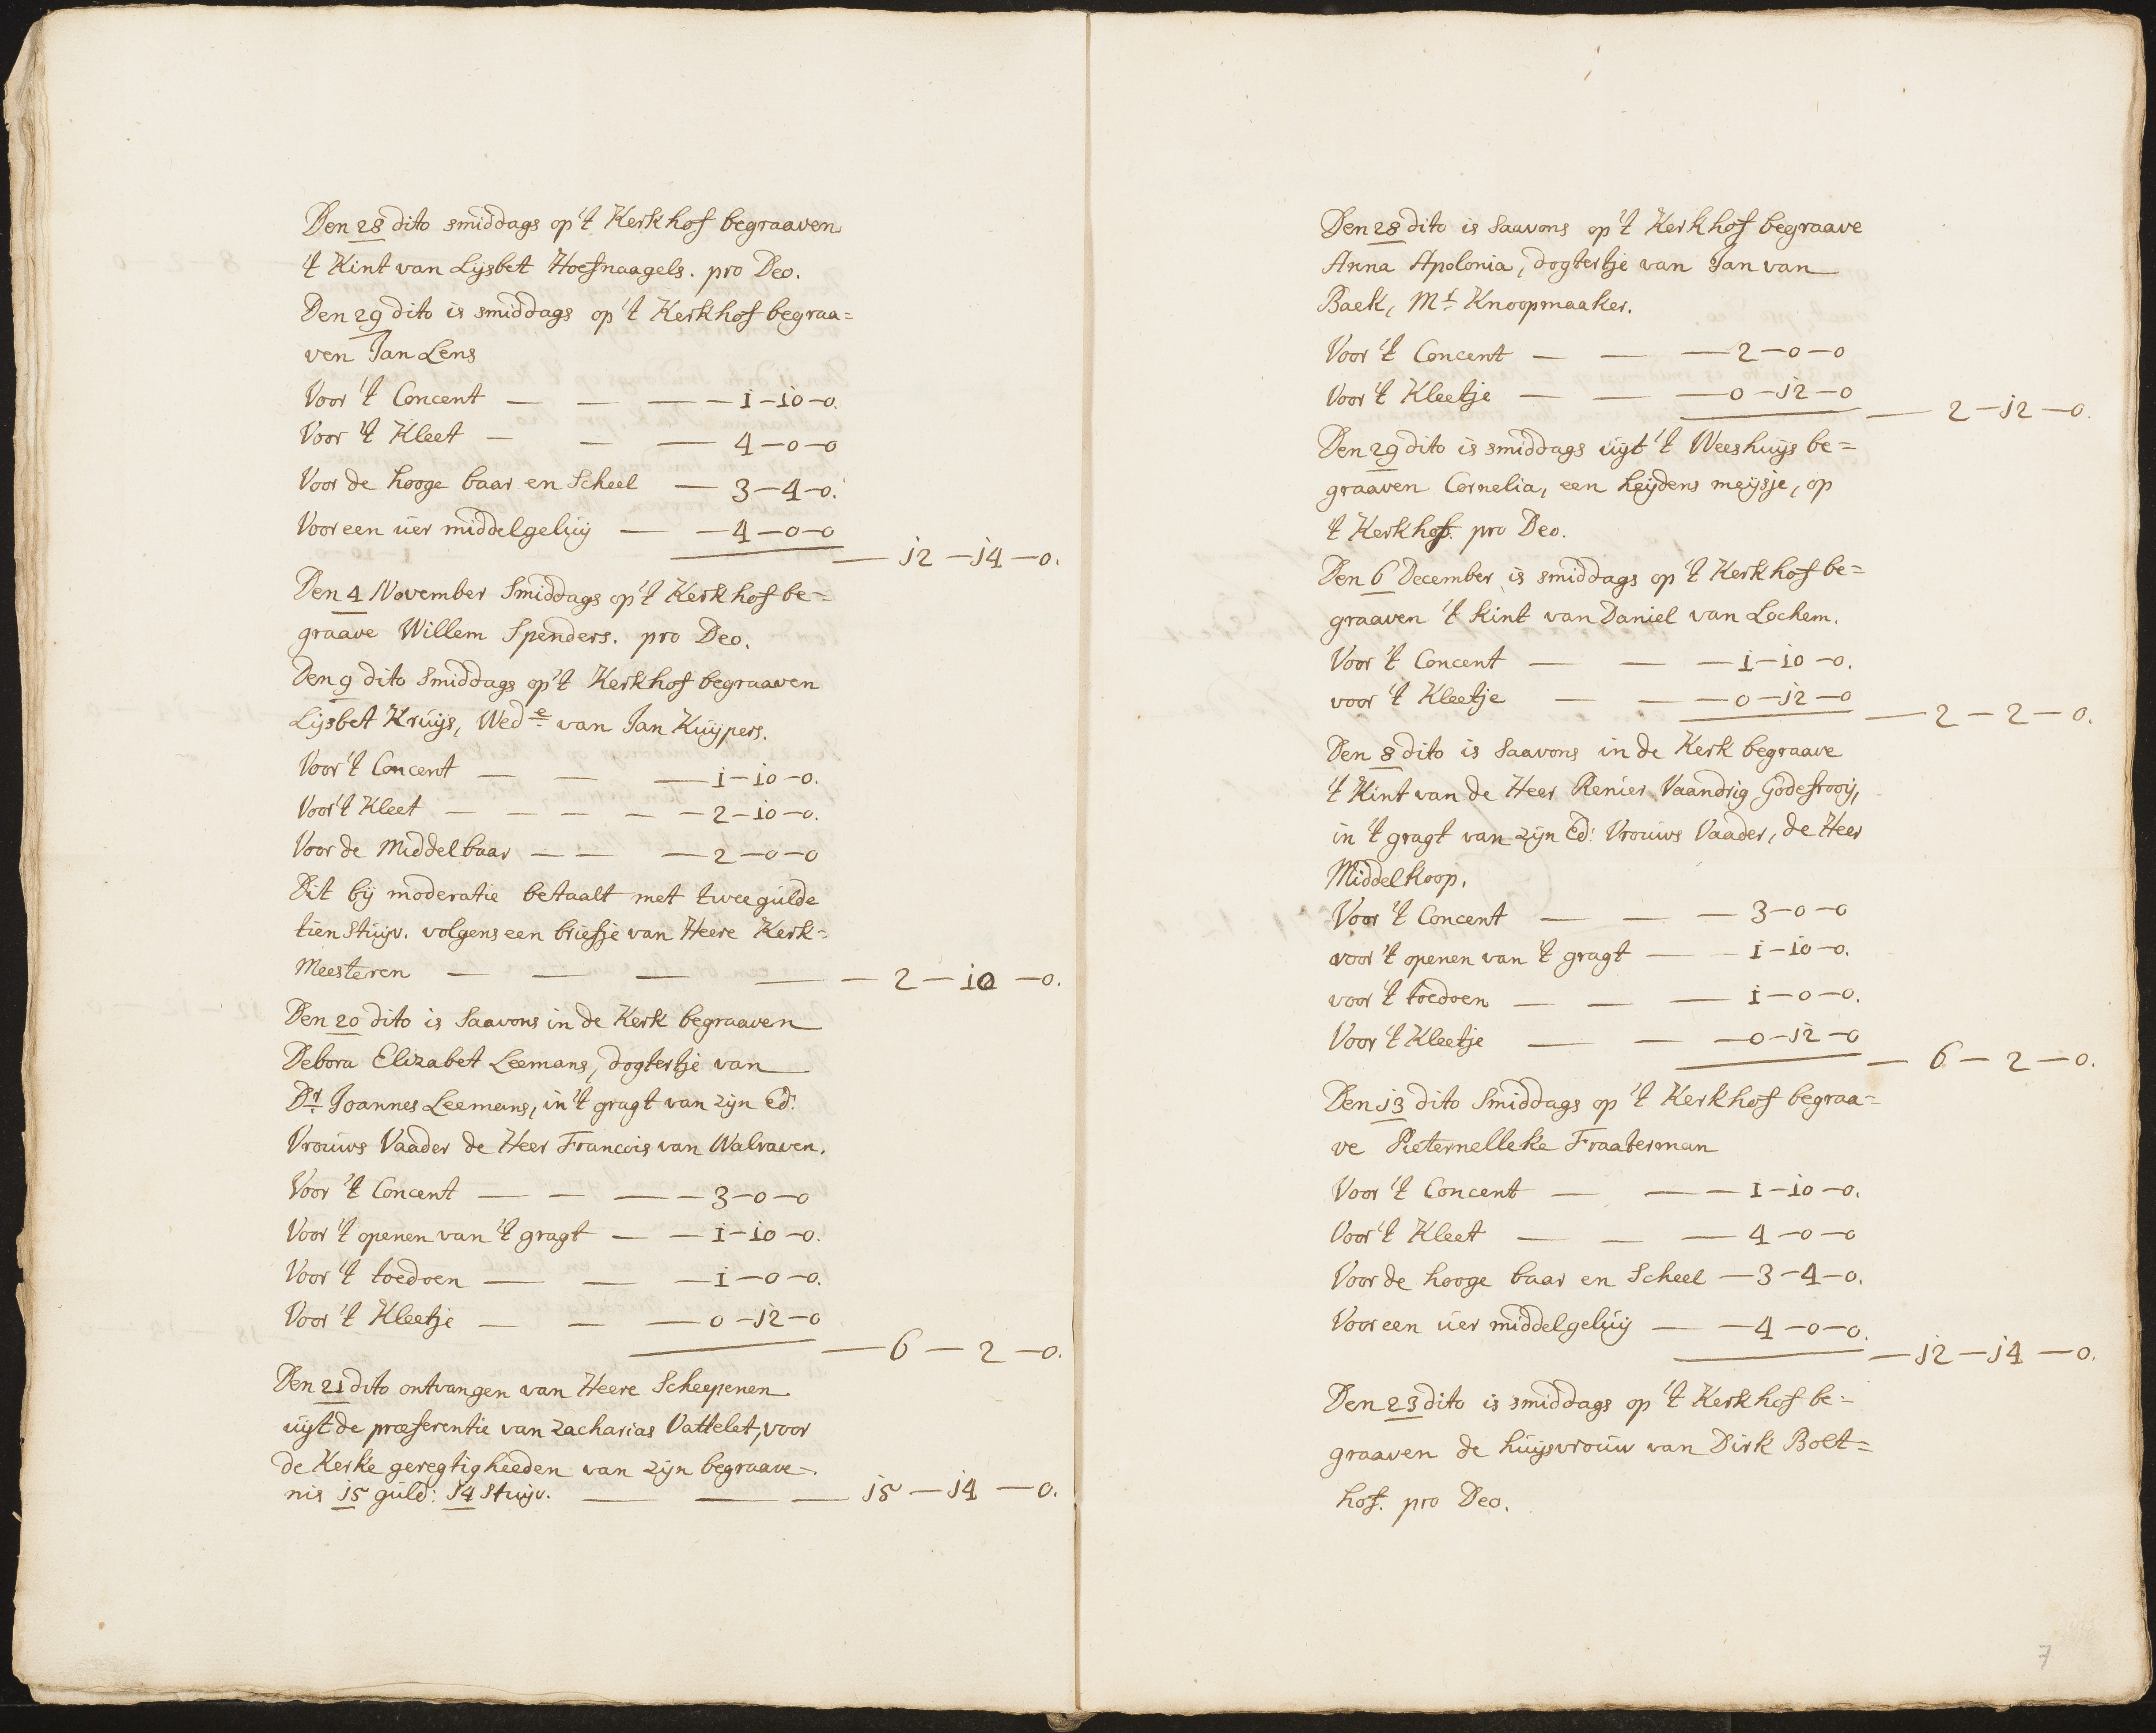 Den 28 dito smiddags op 't Kerkhof begraaven
't Kint van Lijsbet Hoefnaagels. pro Deo.
Den 29 dito is smiddags op 't Kerkhof begraa=
ven Jan Lens
Voor 't Concent — — — — 1–10–0.
Voor 't Kleet — — — 4–0–0
Voor de hooge baar en Scheel — 3–4–0.
Voor een uer middelgeluij — — 4–0–0
— 12–14–0.
Den 4 November Smiddags op 't Kerkhof be=
graave Willem Spenders. pro Deo.
Den 9 dito Smiddags op 't Kerkhof begraaven
Lijsbet Kruijs, Wede van Jan Kuijpers.
Voor 't Concent — — — 1–10–0.
Voor 't Kleet — — — — — 2–10–0.
Voor de Middelbaar — — — 2–0–0
Dit bij moderatie betaalt met twee gulde
tien Stuijv. volgens een briefje van Heere Kerk=
Meesteren — — — — — 2–10–0.
Den 20 dito is Saavons in de Kerk begraaven
Debora Elizabet Leemans, dogtertje van
Dr Joannes Leemans, in 't gragt van zijn Ed:
Vrouws Vaader de Heer Francois van Walraven.
Voor 't Concent — — — — 3–0–0
Voor 't openen van 't gragt — — 1–10–0.
Voor 't toedoen — — — 1–0–0.
Voor 't Kleetje — — — 0–12–0
— 6–2–0.
Den 21 dito ontvangen van Heere Scheepenen
uijt de præferentie van Zacharias Vattelet, voor
de Kerke geregtigheeden van zijn begraave=
nis 15 guld: 14 Stuijv. — — — 15–14–0.
Den 28 dito is Saavons op 't Kerkhof begraave
Anna Apolonia, dogtertje van Jan van
Baek, Mr Knoopmaaker.
Voor 't Concent — — — 2–0–0
Voor 't Kleetje — — — 0–12–0
— 2–12–0.
Den 29 dito is smiddags uijt 't Weeshuijs be=
graaven Cornelia, een heijdens meijsje, op
't Kerkhof. pro Deo.
Den 6 December is smiddags op 't Kerkhof be=
graaven 't kint van Daniel van Lochem.
Voor 't Concent — — — 1–10–0.
voor 't Kleetje — — — 0–12–0
— 2–2–0.
Den 8 dito is Saavons in de Kerk begraave
't Kint van de Heer Renier Vaandrig Godefrooij,
in 't gragt van zijn Ed: Vrouws Vaader, de Heer
Middelkoop.
Voor 't Concent — — — 3–0–0
voor 't openen van 't gragt — — 1–10–0.
voor 't toedoen — — — 1–0–0.
Voor 't Kleetje — — — 0–12–0
— 6–2–0.
Den 13 dito Smiddags op 't Kerkhof begraa=
ve Pieternelleke Fraaterman
Voor 't Concent — — — 1–10–0.
Voor 't Kleet — — — 4–0–0
Voor de hooge baar en Scheel — 3–4–0.
Voor een uer middelgeluij — — 4–0–0.
— 12–14–0.
Den 23 dito is smiddags op 't Kerkhof be=
graaven de huijsvrouw van Dirk Bolt=
hof. pro Deo.
7